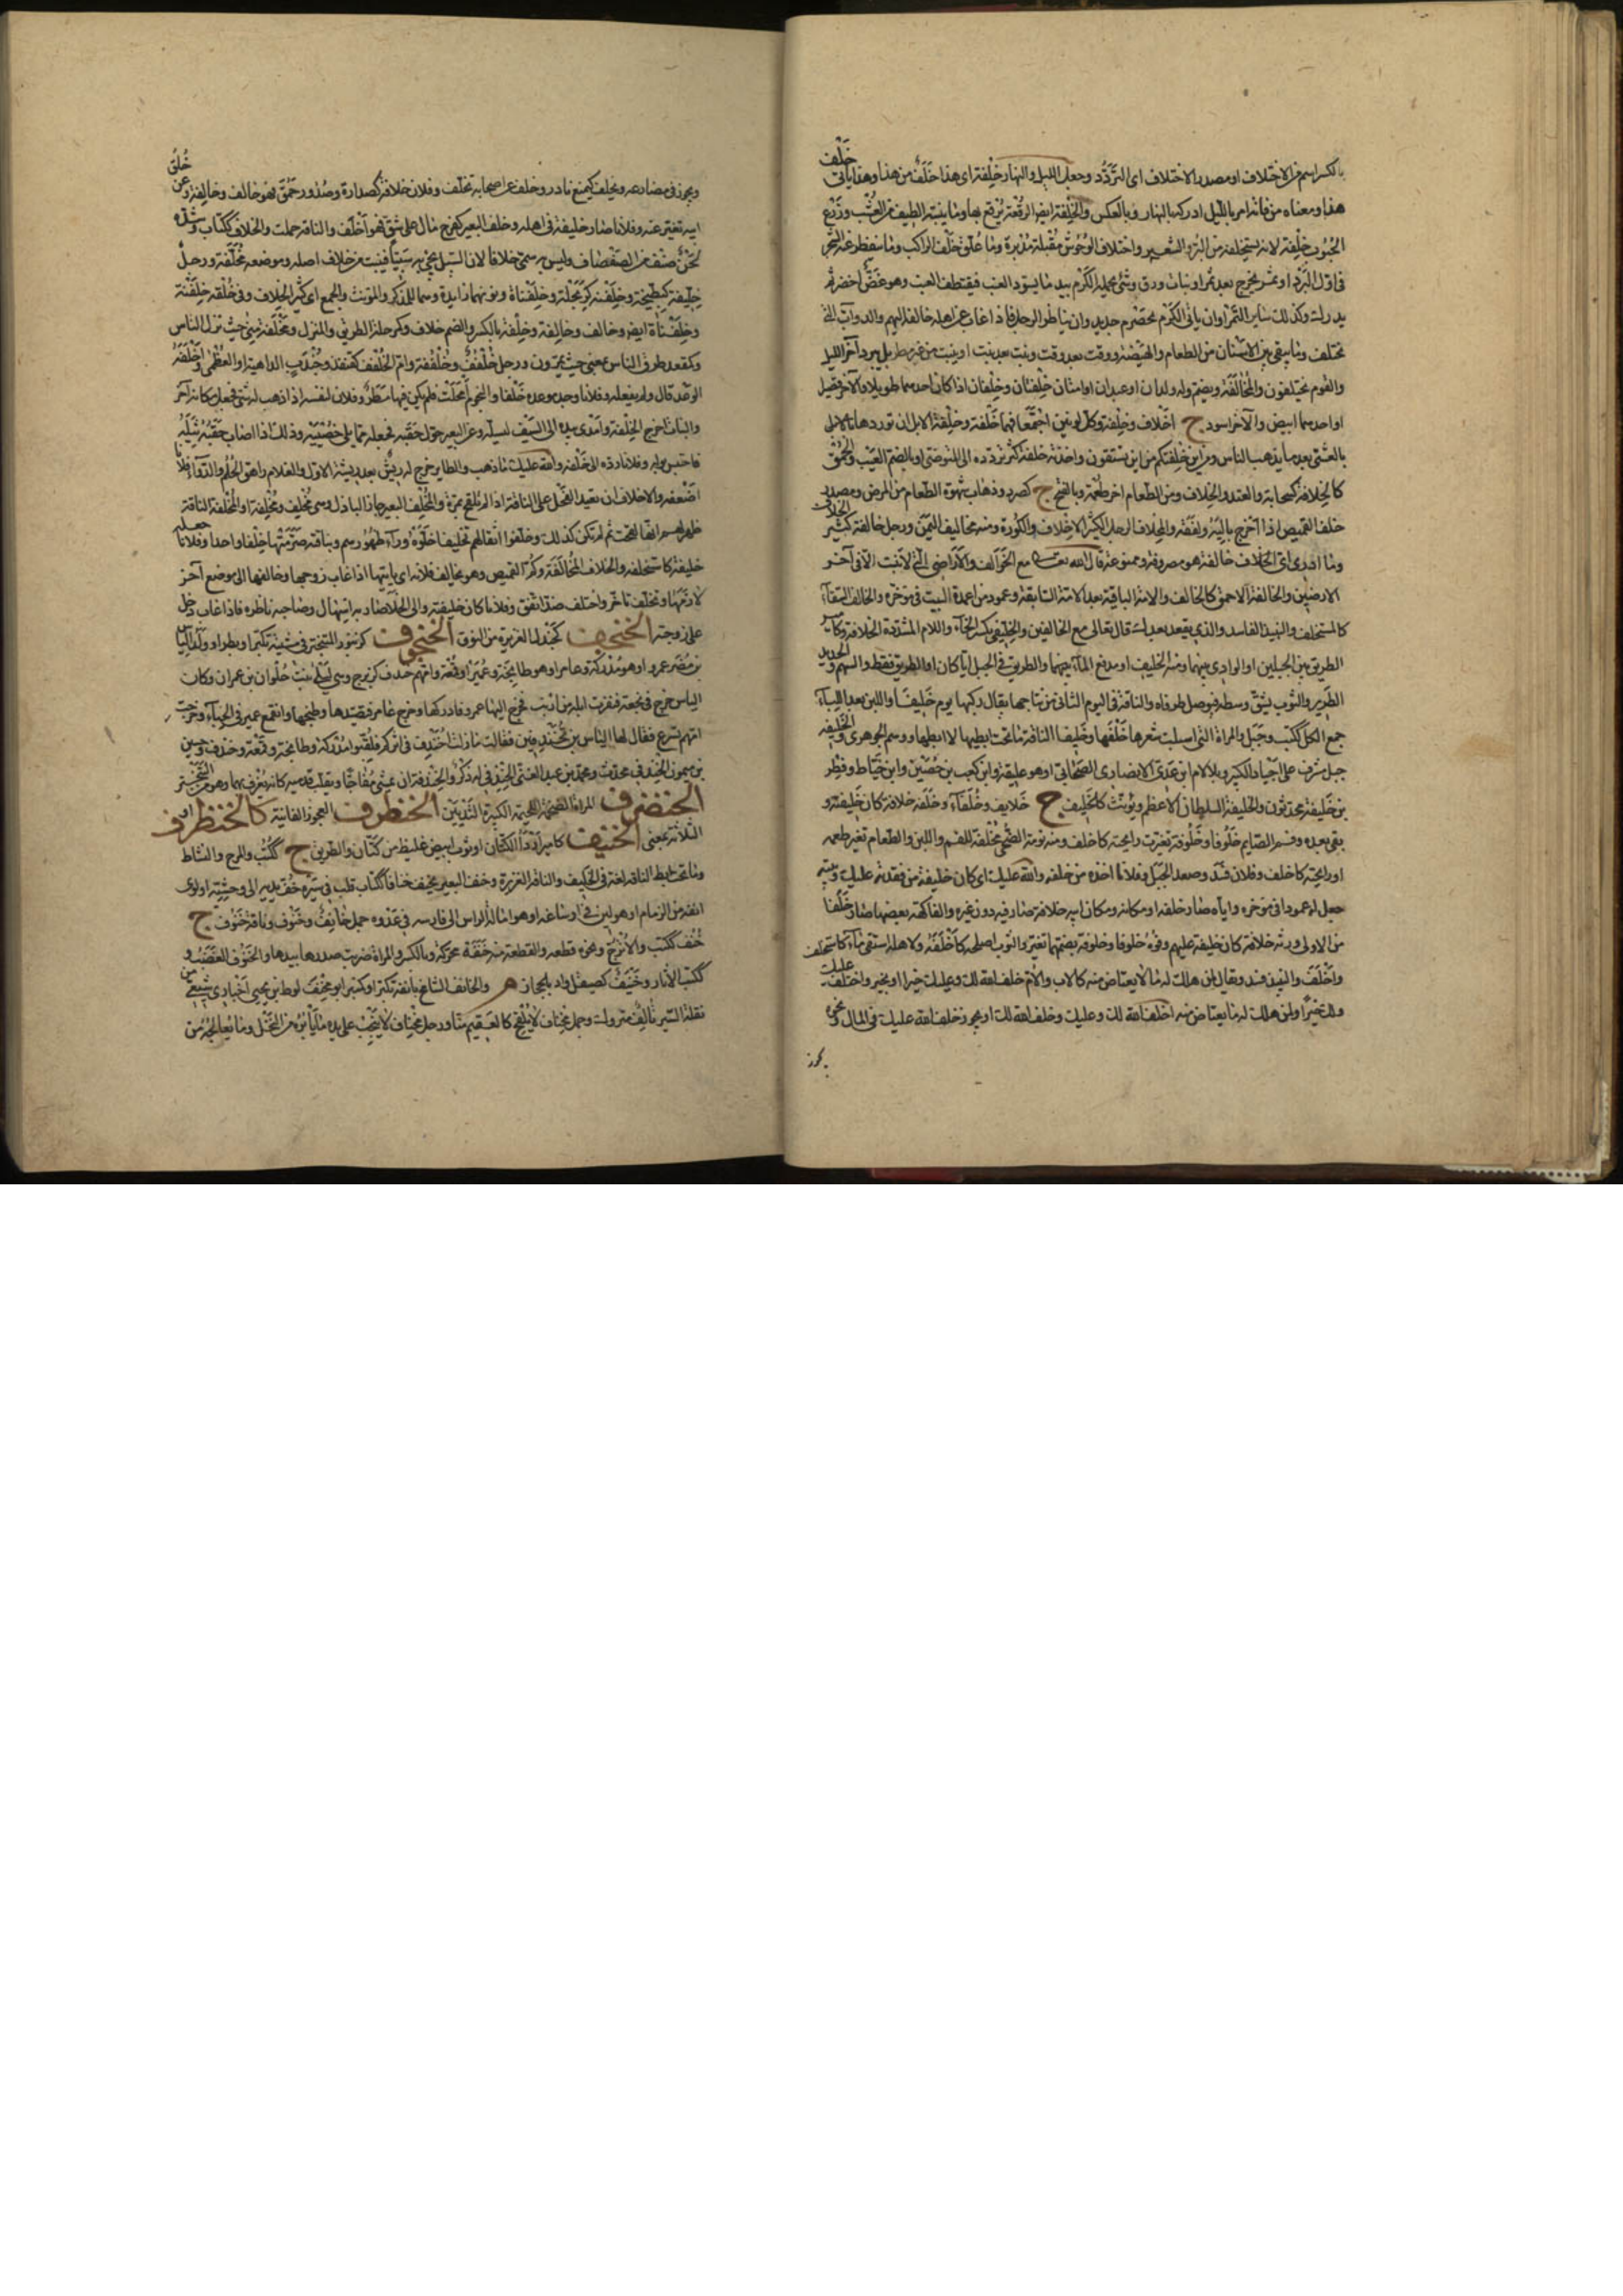 بالكسر اسم من الاختلاف او مصدر الاختلاف اى التردّد وجعل الليل والنهار خِلْفة اى هذا خَلَفٌ من هذا وهذا ياتى خَلْف
هذا ومعناه من فاته امر بالليل ادركه بالنهار وبالعكس والخِلْفة ايضا الرُقعة يُرقع بها وما ينبته الصيف من العُشْب وزَرْع
الحُبُوب خِلْفة لانه يستخلف من البُرّ والشعير واختلاف الوُحُوش مُقْبلة مُدْبرة وما عُلّق خَلْف الراكب وما يتفطر عنه الشجر
فى اوّل البَرْد او ثمر يخرج بعد ثمر او نبات ورق وشئ يحمله الكَرْم بعد ما يسودّ العنب فيقتطف العنب وهو غَضّ اخضر ثم
يدرك وكذلك سائر الثمر او ان ياتى الكَرْم بحصرم جديد وان يناظر الرجل فاذا غاب عن اهله خالفه اليهم والدوابّ التى
تختلف وما يبقى بين الاسنان من الطعام والهَيْضة ووقت بعد وقت ونبت بعد نبت او ينبت من غير مطر بل ببرد آخر الليل
والقوم مختلفون والمُخَالَفة ويضم وله ولدان او عبدان او امتان خِلْفتان وخِلْفان اذا كان احدهما طويلا والآخر قصيرا
او احدهما ابيض والآخر اسود ج اخْلاف وخِلْفة وكل لونين اجتمعا فهما خِلْفة وخِلْفة الابل ان توردها بالابل
بالعشى بعد ما يذهب الناس ومن اين خِلْفتكم من اين تستقون واخذته خِلْفة كثر تردّده الى المتوضى او بالضم العَيْب والحُمْق
كالخلافة كسحابة والعته والخِلاف ومن الطعام آخر طعمه وبالفتح ج كصرد وذهاب شهوة الطعام من المرض ومصدر
خلف القميص اذا اخرج باليه ولفقه والمِخْلاف الرجل الكثير الاخْلاف والكُورة ومنه مخاليف اليَمَن ورجل خالفة كثير الخلاف
وما ادرى اىّ خالفة هو مصروفة وممنوعة قال الله تعالى مع الخَوَالف والاراضى التى لا تنبت الا فى آخر
الارضين والخالفة الاحمق كالخالف والامة الباقية بعد الامة السابقة وعمود من اعمدة البيت فى مؤخره والخالف السقآء
كالمستخلف والنبيذ الفاسد والذى يقعد بعدك قال تعالى مع الخالفين والخِلّيفَى بكسر الخآء واللام المشددة الخلافة وكامير
الطريق بين الجبلين او الوادى بينهما ومنه الخَليف او مدفع المآء بينهما والطريق فى الجبل ايا كان او الطريق فقط والسهم الحديد
الطرير والثوب يُشَقّ وسطه فيوصل طرفاه والناقة فى اليوم الثانى من نتاجها يقال ركبها يوم خَلِيفها واللبن بعد اللِّبَآء
جمع الكل ككتب وجبل والمراة التى اسبلت شعرها خَلْفَها وخليفا الناقة ما تحت ابطيها لا ابطاها ووهم الجوهرى والخَلِيفة
جبل مشرف على اجياد الكبير وبلا لام ابن عَدىّ الانصارى الصحابى او هو عليفة وابن كعب بن حُصَين وابن خَيّاط وفطر
بن خليفة محدّثون والخليفة السلطان الاعظم ويؤنث كالخَلِيف ج خلايف وخُلَفآء وخَلَفه خِلافة كان خليفته و
بقى بعده وفم الصايم خُلُوفا وخُلُوفة تغيرت رايحته كاخلف ومنه نومة الضحى مُخْلِفة للفم واللبن والطعام تغير طعمه
او رايحته كاخلف وفلان فسد وصعد الجبل وفلانا اخذه من خلفه والله عليك اى كان خليفة من فقدته عليك وبيته
جعل له عمودا فى مؤخره واباه صار خلفه او مكانه ومكان ابيه خلافة صار فيه دون غيره والفاكهة بعضها صار خَلَفا
من الاولى وربّه خلافة كان خليفته عليهم وفوه خلوفا وخلوفة بضمهما تغير والثوب اصلحه كاَخْلَفَه ولاهله استقى مآء كاستخلف
واخْلَف والنبيذ فسد ويقال لمن هلك له ما لا يعتاض منه كالاب والام خلف الله لك وعليك خيرا او بخير واخلف عليك
ولك خيرا ولمن هلك له ما يعتاض منه اخلف الله لك وعليك وخلف الله لك او يجوز خلف الله عليك فى المال ونحوه
يجوز
ويجوز فى مضارعه ويخلف كيمنع نادر وخلف عن اصحابه تخلف وفلان خلافة كصدارة وصُدور حَمُق فهو خالف وخالفة وعن خُلُق
ابيه تغير عنه وفلانا صار خليفته فى اهله وخلف البعير كفرح مال على شِقّ فهو اخْلَف والناقة حملت والخلاف ككتاب وشدّه
لَحْن صنف من الصَفْصاف وليس به سمى خلافا لان السيل يجئ به سَبْيا فينبت من خلاف اصله وموضعه مَخْلَفة ورجل
خِلّيفة كبطيخة وخِلَفْنة كربحلة وخِلَفْناة ونونهما زايدة وهما للمذكر والمؤنث والجمع اى كثير الخِلاف وفى خُلُقه خِلَفْنة
وخِلَفْناة ايضا وخالف وخالفة وخِلْفة بالكسر والضم خلاف وكمرحلة الطريق والمنزل ومَخْلَفة مِنى حيث ينزل الناس
وكمقعد طرق الناس بمنى حيث يمرون ورجل خُلْفُف وخُلْفُفة وام الخُلْفُف كقنفذ وجُنْدَب الداهية او العُظْمى واَخْلَفَه
الوعد قال ولم يفعله وفلانا وجد موعده خُلْفا والنجوم اَمْحَلَت فلم يكن فيها مطر وفلان لنفسه اذا ذهب له شئ فجعل مكانه آخر
والنبات اخرج الخِلْفة واَهْوَى بيده الى السيف ليسلّه وعن البعير حوّل حَقَبه فجعله مما يلى خُصْيَيْه وذلك اذا اصاب حَقَبُه ثِيلَه
فاحتبس بوله وفلانا ردّه الى خَلْفه والله عليك ما ذهب والطاير خرج له ريش بعد ريشه الاول والغلام راهق الحُلُم والدوآء فلانا
اَضْعَفَه والاخلاف ان تعيد الفحل على الناقة اذا لم تلقح بمرة والمُخْلِف البعير جاز البازل وهى مُخْلِف ومُخْلِفة او المُخْلِفة الناقة
ظهر لهم انها لقحت ثم لم تكن كذلك وخلّفوا اثقالهم تخليفا خلّوه ورآء ظهورهم وبناقته صرّ منها خِلْفا واحدا وفلانا جعله
خليفته كاستخلفه والخلاف المُخَالَفة وكُمّ القميص وهو يخالف فلانة اى ياتيها اذا غاب زوجها وخالفها الى موضع آخر
لازمها وتخلّف تاخر واختلف ضدّ اتفق وفلانا كان خليفته والى الخلا صار به اسهال وصاحبه ناظره فاذا غاب دخل
على زوجته الخنجف كجندل الغزيرة من النوق الخنجوف كزنبور المتبختر فى مشيته تكبرا وبطرا وولد الياس
بن مُضَر عمرو وهو مُدْركة وعامر وهو طابخة وعُمَير وهو قَمَعة وامهم خِنْدِف كزبرج وهى لَيْلَى بنت حُلْوان بن عمران وكان
الياس خرج فى نجعة فنفرت ابله من ارنب فخرج اليها عمرو فادركها وخرج عامر فتصيّدها وطبخها وانقمع عمير فى الخِبآء وخرجت
امهم تسرع فقال لها الياس اين تُخَنْدِفين فقالت ما زلت اُخَنْدِف فى اثركم فلُقّبوا مُدْركة وطابخة وقَمَعة وخِنْدف وحسين
بن ميمون الخِنْدفى محدث ومحمد بن عبد الغنى الخِنْدفى له ذكر والخَنْدفة ان يمشى مُفاجّا ويقلب قدميه كانه يغرف بهما وهو من التبختر
الخنضف المراة الضخمة اللحيمة الكبيرة الثديين الخنطرف العجوز الفانية كالخنظرف او
الثلاثة بمعنى الخنيف كامير اَرْدَأ الكتّان او ثوب ابيض غليظ من كتّان والطريق ج ككُتُب والمرح والنشاط
وما تحت ابط الناقة لغة فى الخليف والناقة الغزيرة وخنف البعير يخنف خنافا ككتاب قلب فى سيره خُفّ يديه الى وحشيّه او لوى
انفه من الزمام او هو لين فى ارساغه او هو امالته الراس الى فارسه فى عَدْوه جمل خانف وخَنُوف وناقة خَنُوف ج
خُنُف ككتب والاترج ونحوه قطعه والقطعة منه خَنَفة محركة وبالكسر والمراة ضربت صدرها بيدها والخنوف الغضب و
ككتب الآثار وخَيْنَف كصيقل واد بالحجاز م والخانف الشامخ بانفه تكبرا وكمنبر ابو مِخْنَف لوط بن يحيى اخبارى شيعى من
نقلة السير تالف متروك وجمل مخناف لا يُلْقِح كالعقيم منا ورجل مخناف لا يُنْجب على يده ما يأبُره من النخل وما يعالجه من